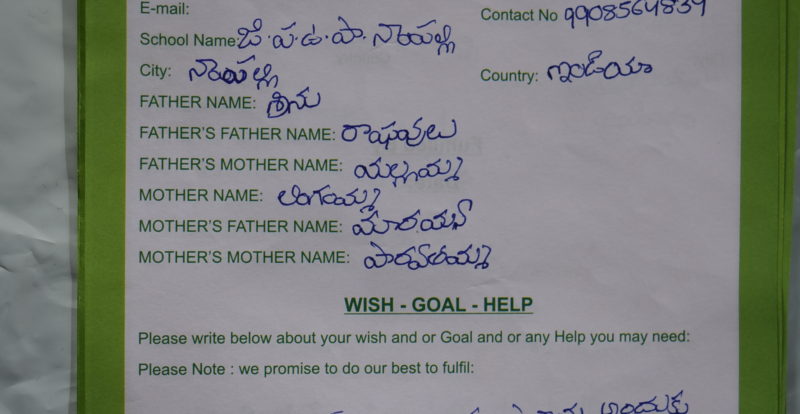 E-mail:
Contact No 9908564839
School Name: జి.ప.ఉ.పా. నారపల్లి
City: నారపల్లి Country: ఇండియా
FATHER NAME: శ్రీను
FATHER'S FATHER NAME: రాఘవులు
FATHER'S MOTHER NAME: యల్లమ్మ
MOTHER NAME: లింగమ్మ
MOTHER'S FATHER NAME:
MOTHER'S MOTHER NAME: పార్వతమ్మ
WISH - GOAL - HELP
Please write below about your wish and or Goal and or any Help you may need:
Please Note : we promise to do our best to fulfil: